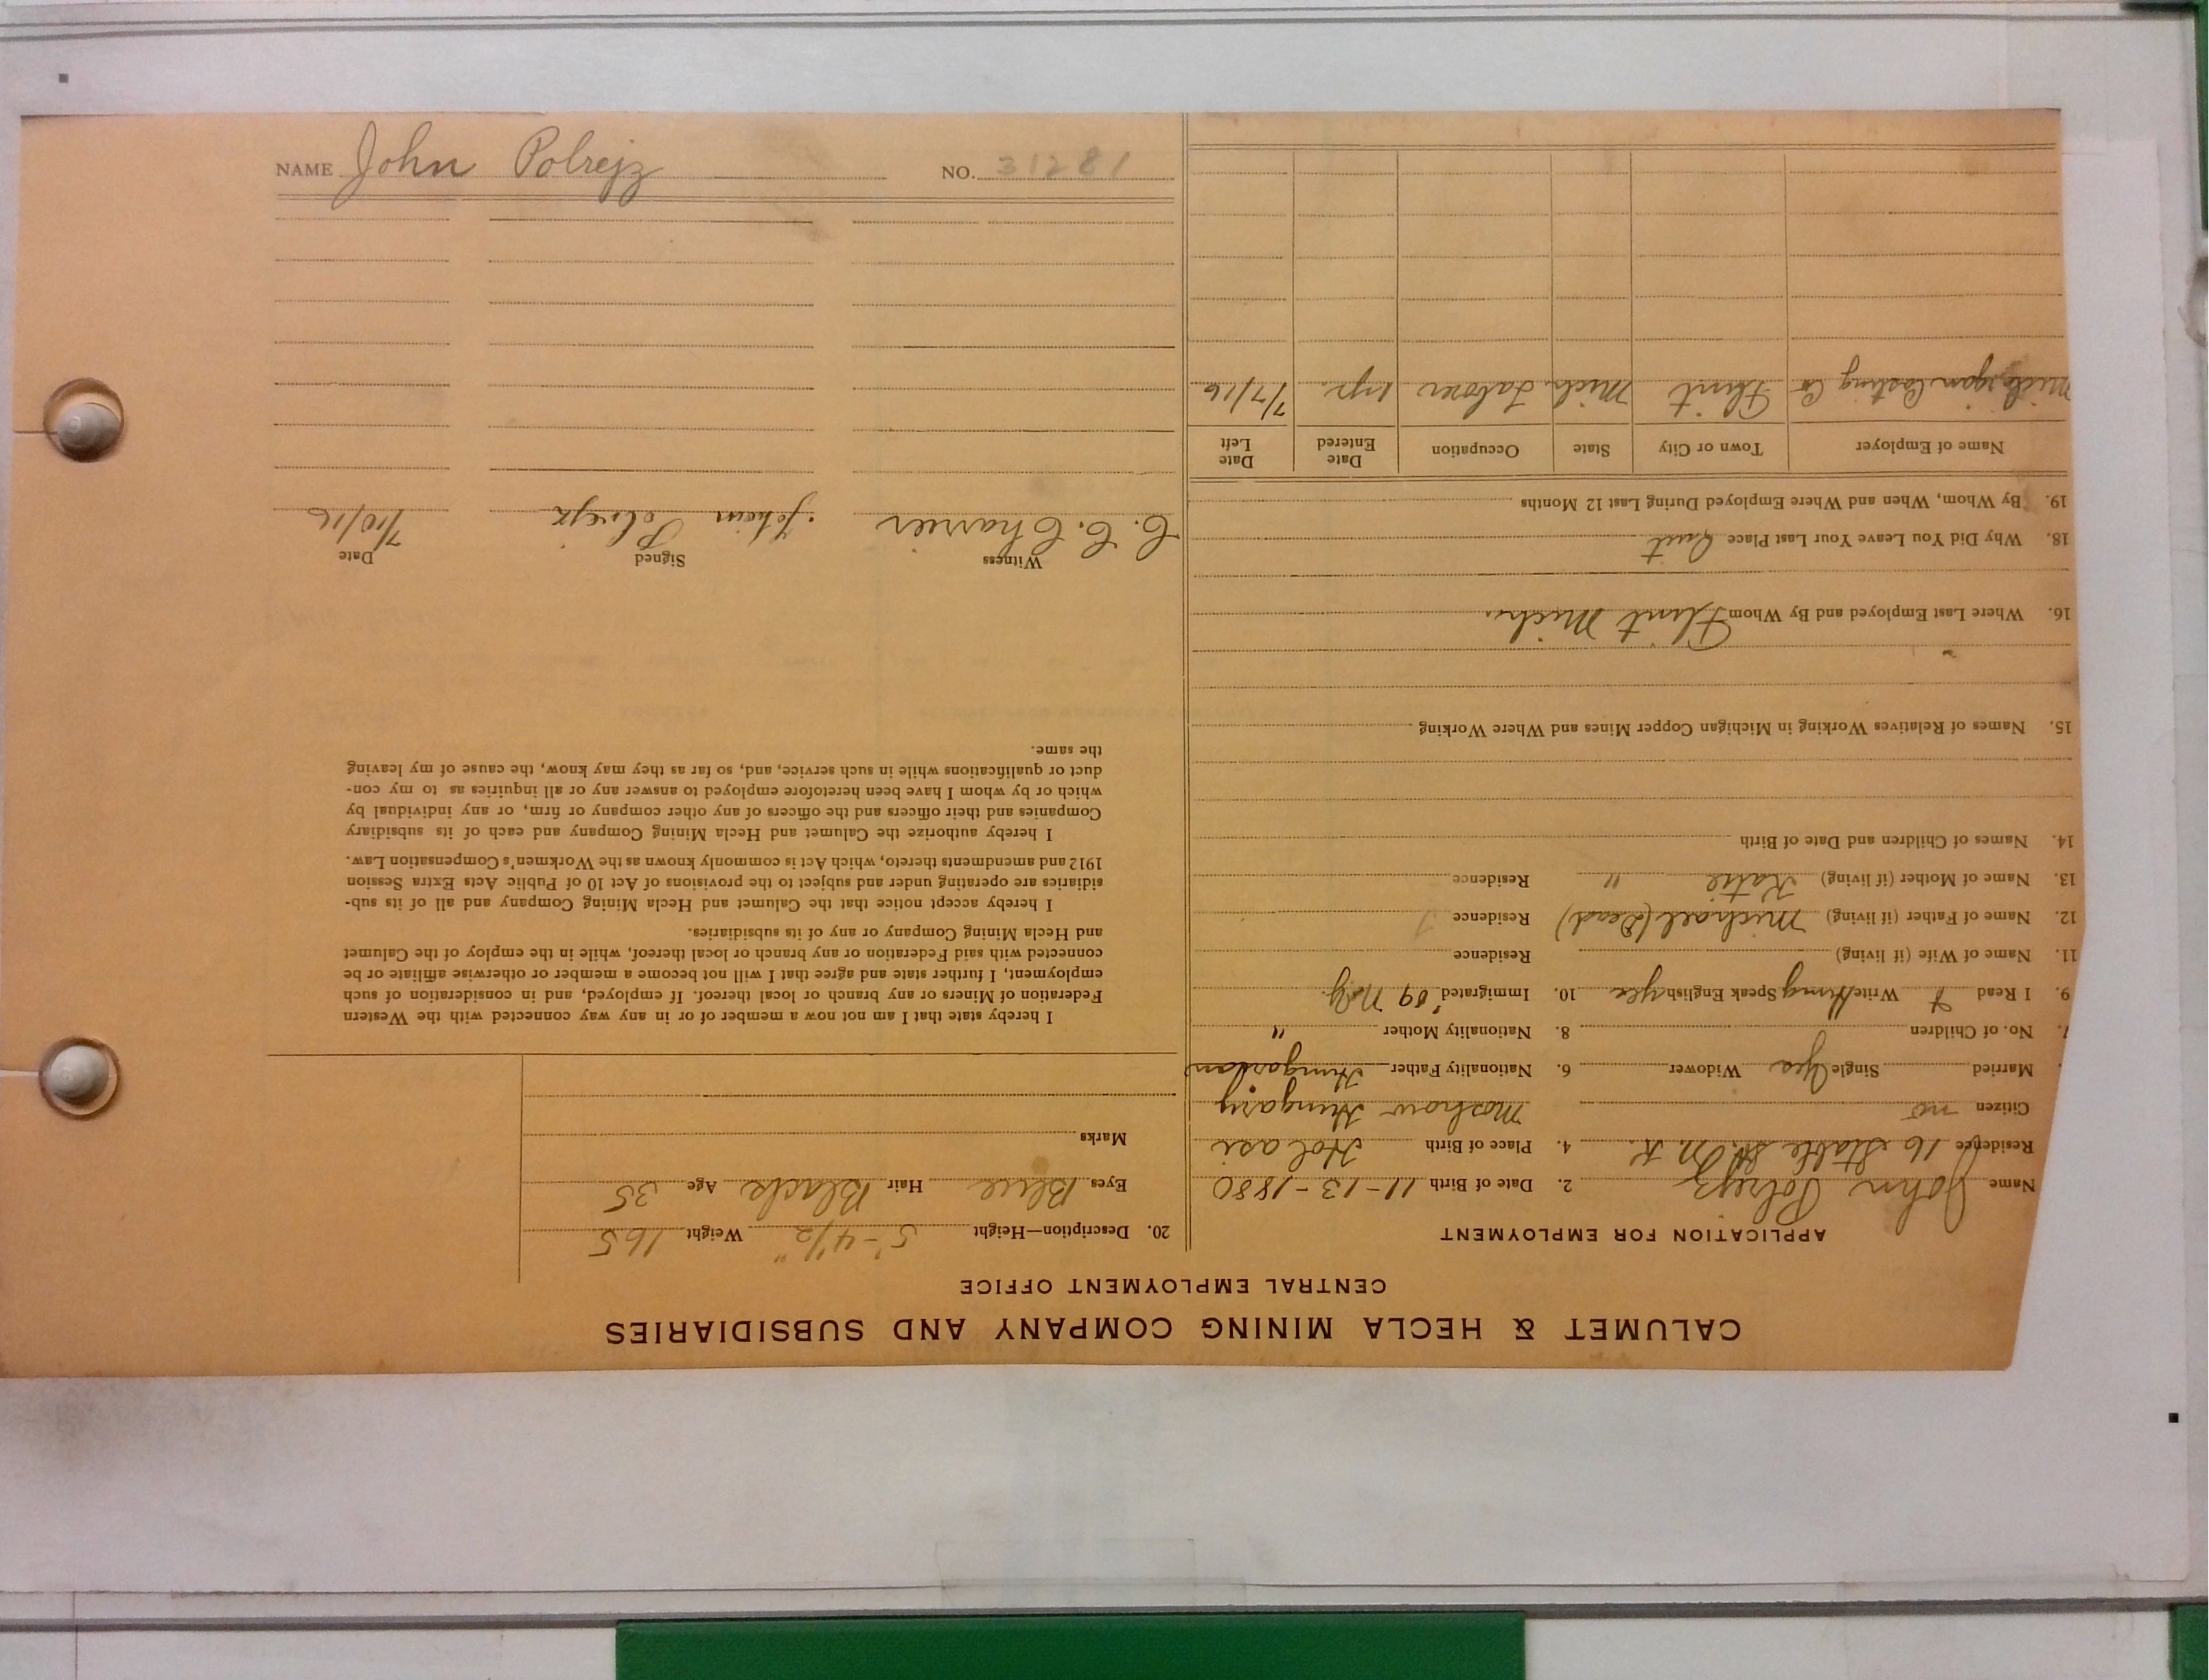 NAME John Polrejz NO. 31281
CALUMET & HECLA MINING COMPANY AND SUBSIDIARIES
CENTRAL EMPLOYMENT OFFICE
APPLICATION FOR EMPLOYMENT
Name John Polrejz 2. Date of Birth 11-13-1880
Residence 16 Stable St. 4. Place of Birth
Citizen no Hungary
Married Single Yes Widower 6. Nationality Father Hungarian
7. No. of Children 8. Nationality Mother "
9. I Read & Write Hung Speak English yes 10. Immigrated '09 N.Y.
11. Name of Wife (if living) Residence
12. Name of Father (if living) Michael (Dead) Residence
13. Name of Mother (if living) Katie " Residence
14. Names of Children and Date of Birth
15. Names of Relatives Working in Michigan Copper Mines and Where Working
16. Where Last Employed and By Whom Flint Mich.
18. Why Did You Leave Your Last Place Quit
19. By Whom, When and Where Employed During Last 12 Months
Name of Employer Town or City State Occupation Date Entered Date Left
Michigan Casting Co Flint Mich. Laborer 1 yr. 7/7/16
20. Description—Height 5'-4 1/2" Weight 165
Eyes Blue Hair Black Age 35
Marks
I hereby state that I am not now a member of or in any way connected with the Western
Federation of Miners or any branch or local thereof. If employed, and in consideration of such
employment, I further state and agree that I will not become a member or otherwise affiliate or be
connected with said Federation or any branch or local thereof, while in the employ of the Calumet
and Hecla Mining Company or any of its subsidiaries.
I hereby accept notice that the Calumet and Hecla Mining Company and all of its sub-
sidiaries are operating under and subject to the provisions of Act 10 of Public Acts Extra Session
1912 and amendments thereto, which Act is commonly known as the Workmen's Compensation Law.
I hereby authorize the Calumet and Hecla Mining Company and each of its subsidiary
Companies and their officers and the officers of any other company or firm, or any individual by
which or by whom I have been heretofore employed to answer any or all inquiries as to my con-
duct or qualifications while in such service, and, so far as they may know, the cause of my leaving
the same.
Witness Signed Date
C. C. Charrier Polrejz 7/10/16